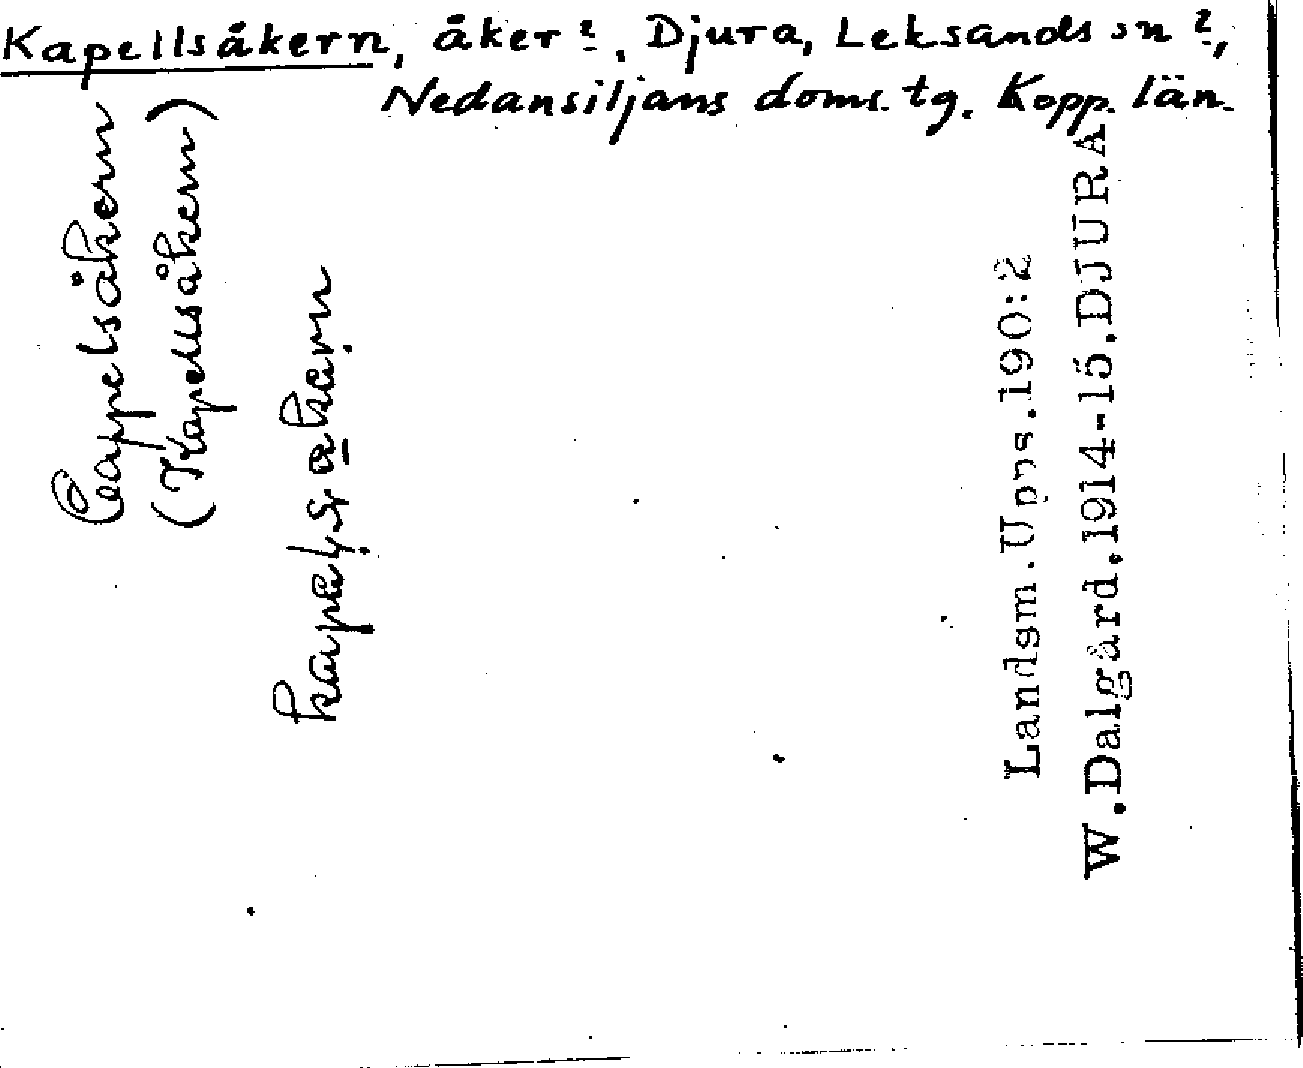 Kapellsåkern, åker?, Djura, Leksands sn?,
Nedansiljans doms. tg. Kopp. län.
Cappelsåkern
(Kapellsåkern)
Landsm. Upps. 190:2
W. Dalgård, 1914-15. DJURA